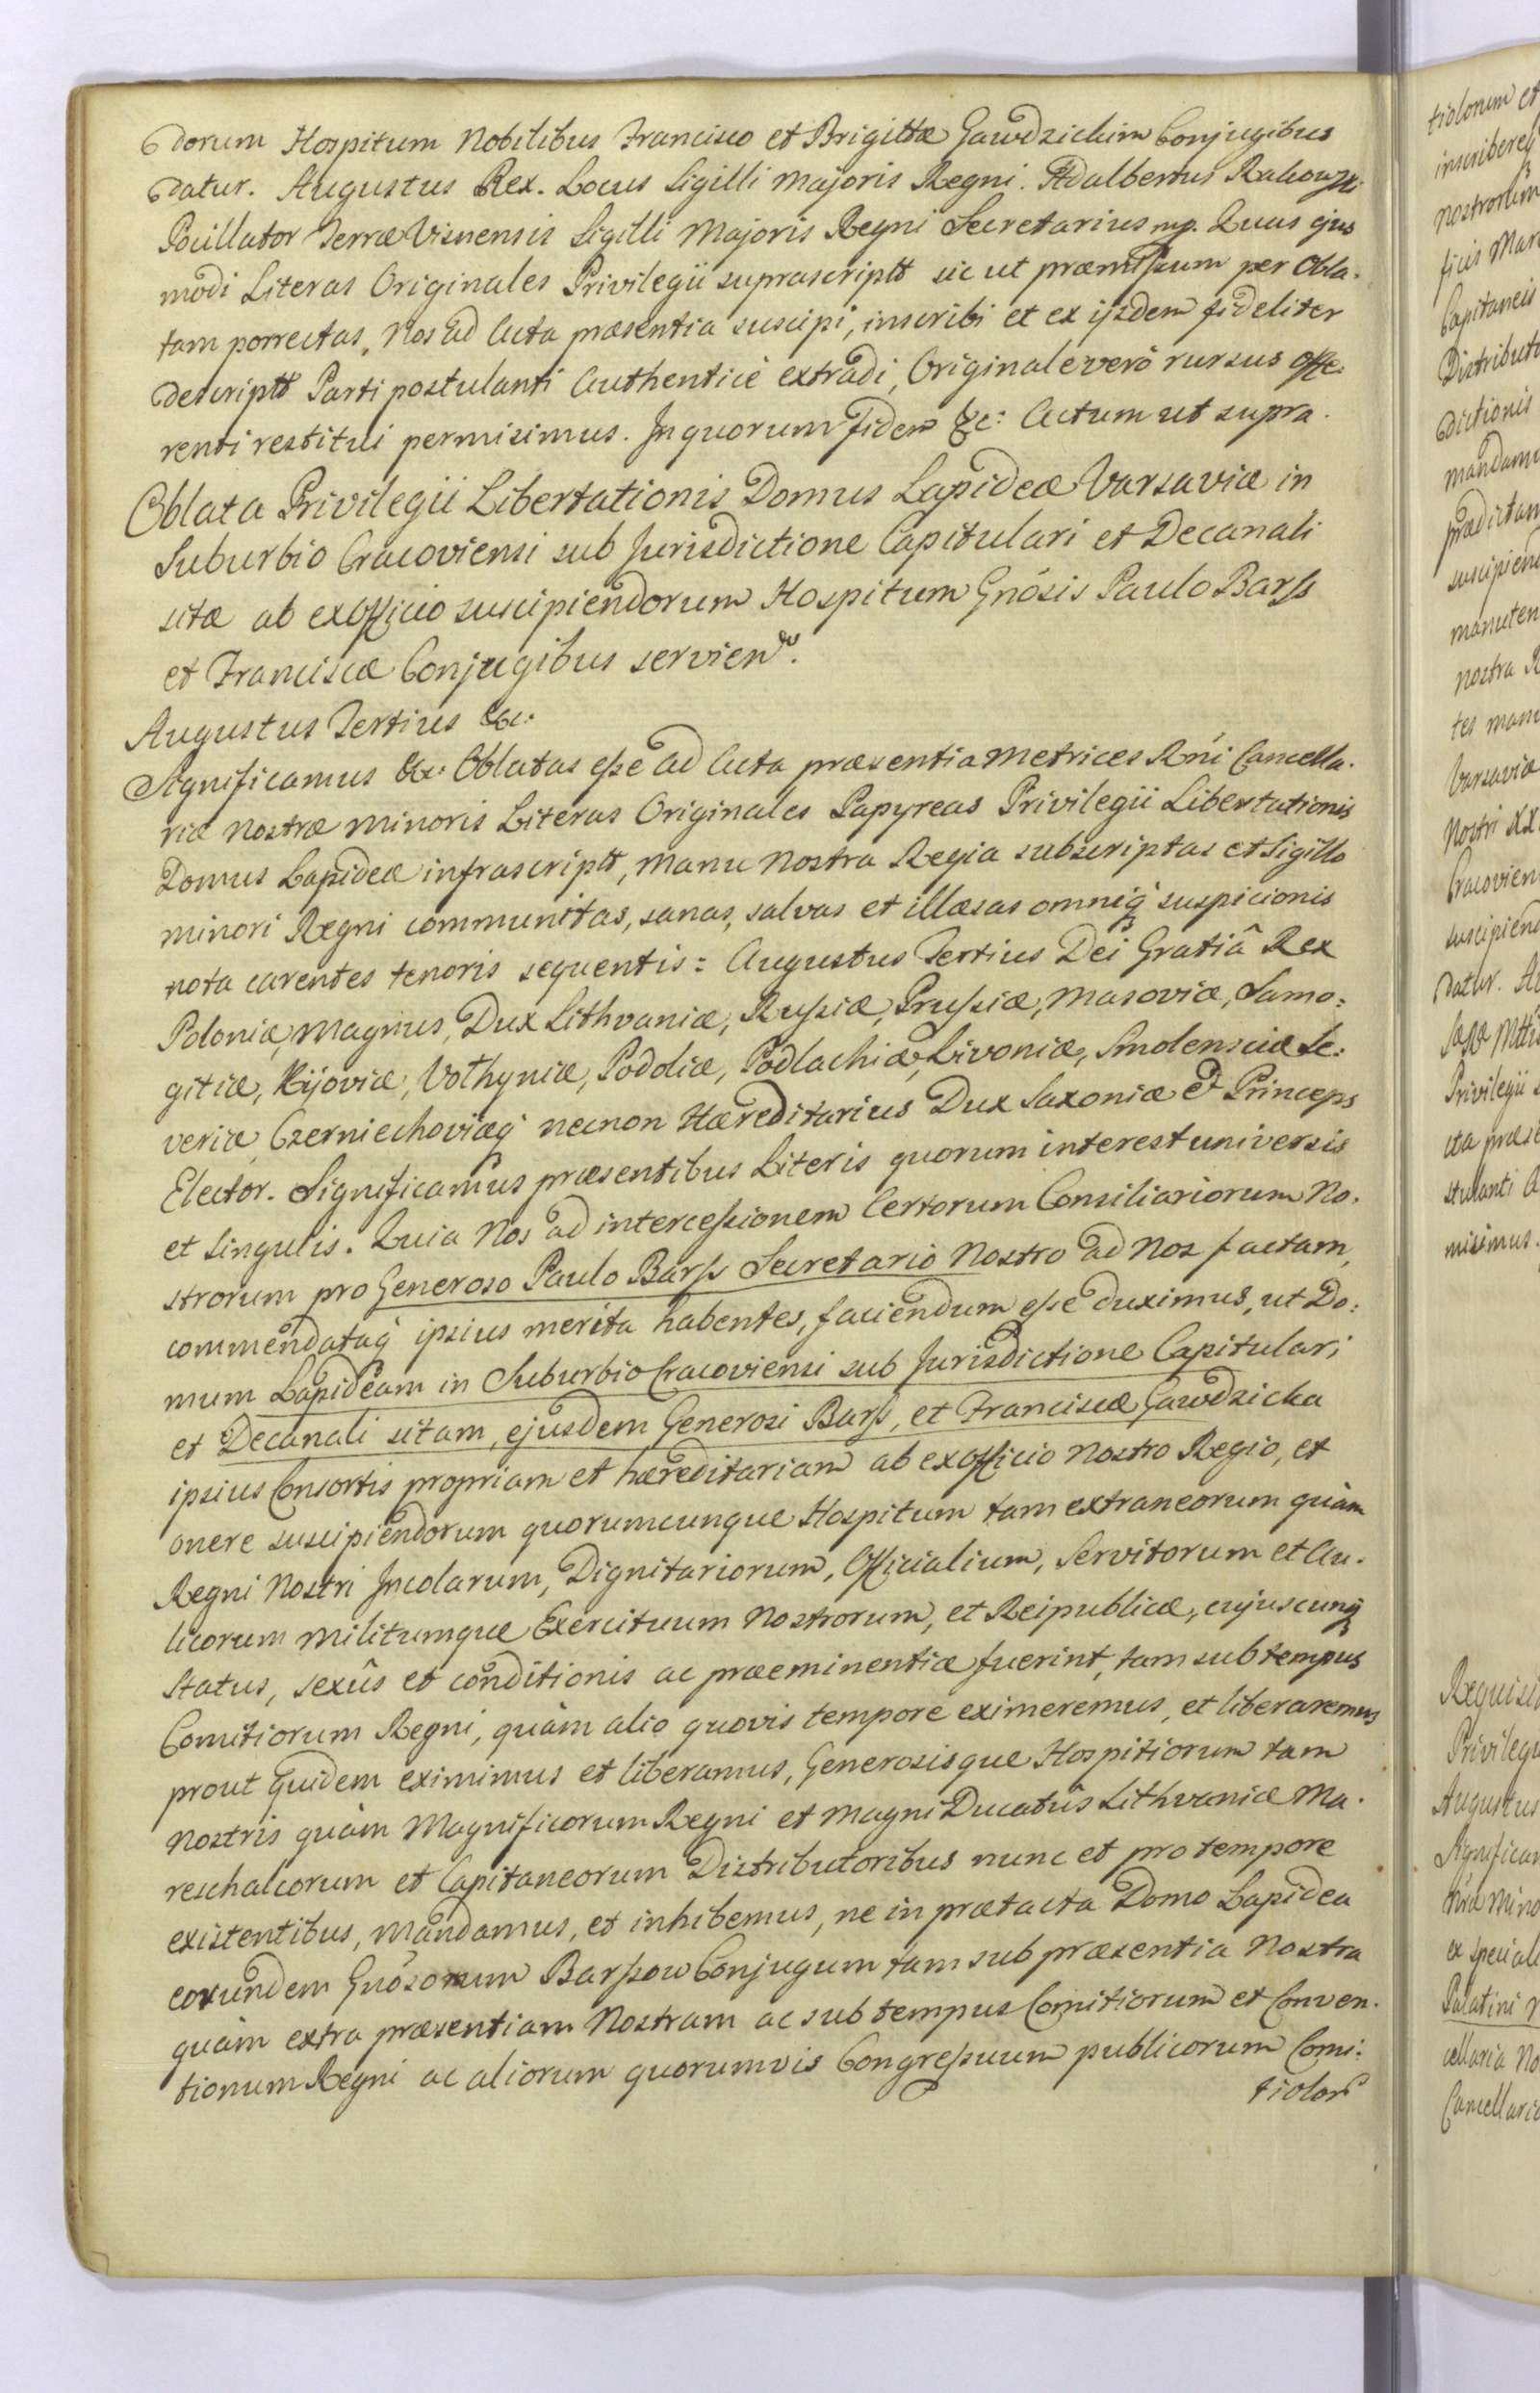 dorum Hospitum Nobilibus Francisco et Brigittæ Gawdzickim Conjugibus
datur. Augustus Rex. Locus Sigilli Majoris Regni. Adalbertus Rakowski
Pocillator Terræ Visnensis Sigilli Majoris Regni Secretarius mp. Quas ejus
modi Literas Originales Privilegii suprascriptt sic ut præmissum per Obla-
tam porrectas, Nos ad Acta præsentia suscipi, inscribi et ex ijsdem fideliter
descriptt Parti postulanti Authenticè extradi, Originale verò rursus offe:
renti restitui permisimus. In quorum Fidem &c: Actum ut supra.
Oblata Privilegii Libertationis Domus Lapideæ Varsaviæ in
Suburbio Cracoviensi sub Jurisdictione Capitulari et Decanali
sitæ ab ex officio suscipiendorum Hospitum Gnősis Paulo Barss
et Franciscæ Conjugibus servien.
Augustus Tertius &c.
Significamus &c: Oblatas esse ad Acta præsentia Metrices Rni Cancella-
riæ Nostræ Minoris Literas Originales Papyreas Privilegii Libertationis
Domus Lapideæ infrascriptt, Manu Nostra Regia subscriptas et Sigillo
minori Regni communitas, sanas, salvas et illæsas omniq suspicionis
nota carentes tenoris sequentis: Augustus Tertius Dei Gratiâ Rex
Poloniæ, Magnus, Dux Lithvaniæ, Russiæ, Prussiæ, Masoviæ, Samo:
gitiæ, Kijoviæ, Volhyniæ, Podoliæ, Podlachiæ, Livoniæ, Smolensciæ Se:
veriæ, Czerniechoviæq necnon Hæreditarius Dux Saxoniæ & Princeps
Elector. Significamus præsentibus Literis quorum interest universis
et singulis. Quia Nos ad intercessionem Certorum Consiliariorum No-
strorum pro Generoso Paulo Barss Secretario Nostro ad Nos factam,
commendataq ipsius merita habentes, faciendum esse duximus, ut Do:
mum Lapideam in Suburbio Cracoviensi sub Jurisdictione Capitulari
et Decanali sitam, ejusdem Generosi Barss, et Franciscæ Gawdzicka
ipsius Consortis propriam et hæreditariam ab ex officio Nostro Regio, et
onere suscipiendorum quorumcunque Hospitum tam extraneorum quàm
Regni Nostri Incolarum, Dignitariorum, Officialium, Servitorum et Au-
licorum Militumque Exercituum Nostrorum, et Reipublicæ, cujuscunq
Status, sexûs et conditionis ac præeminentiæ fuerint, tam sub tempus
Comitiorum Regni, quàm alio quovis tempore eximeremus, et liberaremus
prout quidem eximimus et liberamus, Generosisque Hospitiorum tam
Nostris quàm Magnificorum Regni et Magni Ducatûs Lithvaniæ Ma-
reschalcorum et Capitaneorum Distributoribus nunc et pro tempore
existentibus, Mandamus, et inhibemus, ne in prætacta Domo Lapidea
eorundem Gnősorum Barssow Conjugum tam sub præsentia Nostra
quàm extra præsentiam Nostram ac sub tempus Comitiorum et Conven-
tionum Regni ac aliorum quorumvis Congressuum publicorum Comi:
tiolor